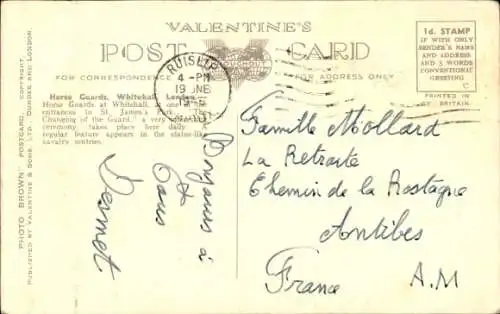 VALENTINE'S
POST CARD
FOR CORRESPONDENCE
FOR ADDRESS ONLY
1d. STAMP
IF WITH ONLY
SENDER'S NAME
AND ADDRESS
AND 5 WORDS
CONVENTIONAL
GREETING
C
PRINTED IN
GT. BRITAIN.
RUISLIP
4 - PM
19
Horse Guards, Whitehall, London.
Horse Guards at Whitehall, is one
entrances to St. James's Park. The
Changing of the Guard, a very
ceremony takes place here daily
regular feature appears in the statue-like
cavalry sentries.
"PHOTO BROWN" POSTCARD. COPYRIGHT.
PUBLISHED BY VALENTINE & SONS. LTD., DUNDEE AND LONDON.
à
tous
Famille Mollard
La Retraite
Chemin de la Rostagne
Antibes
France A.M